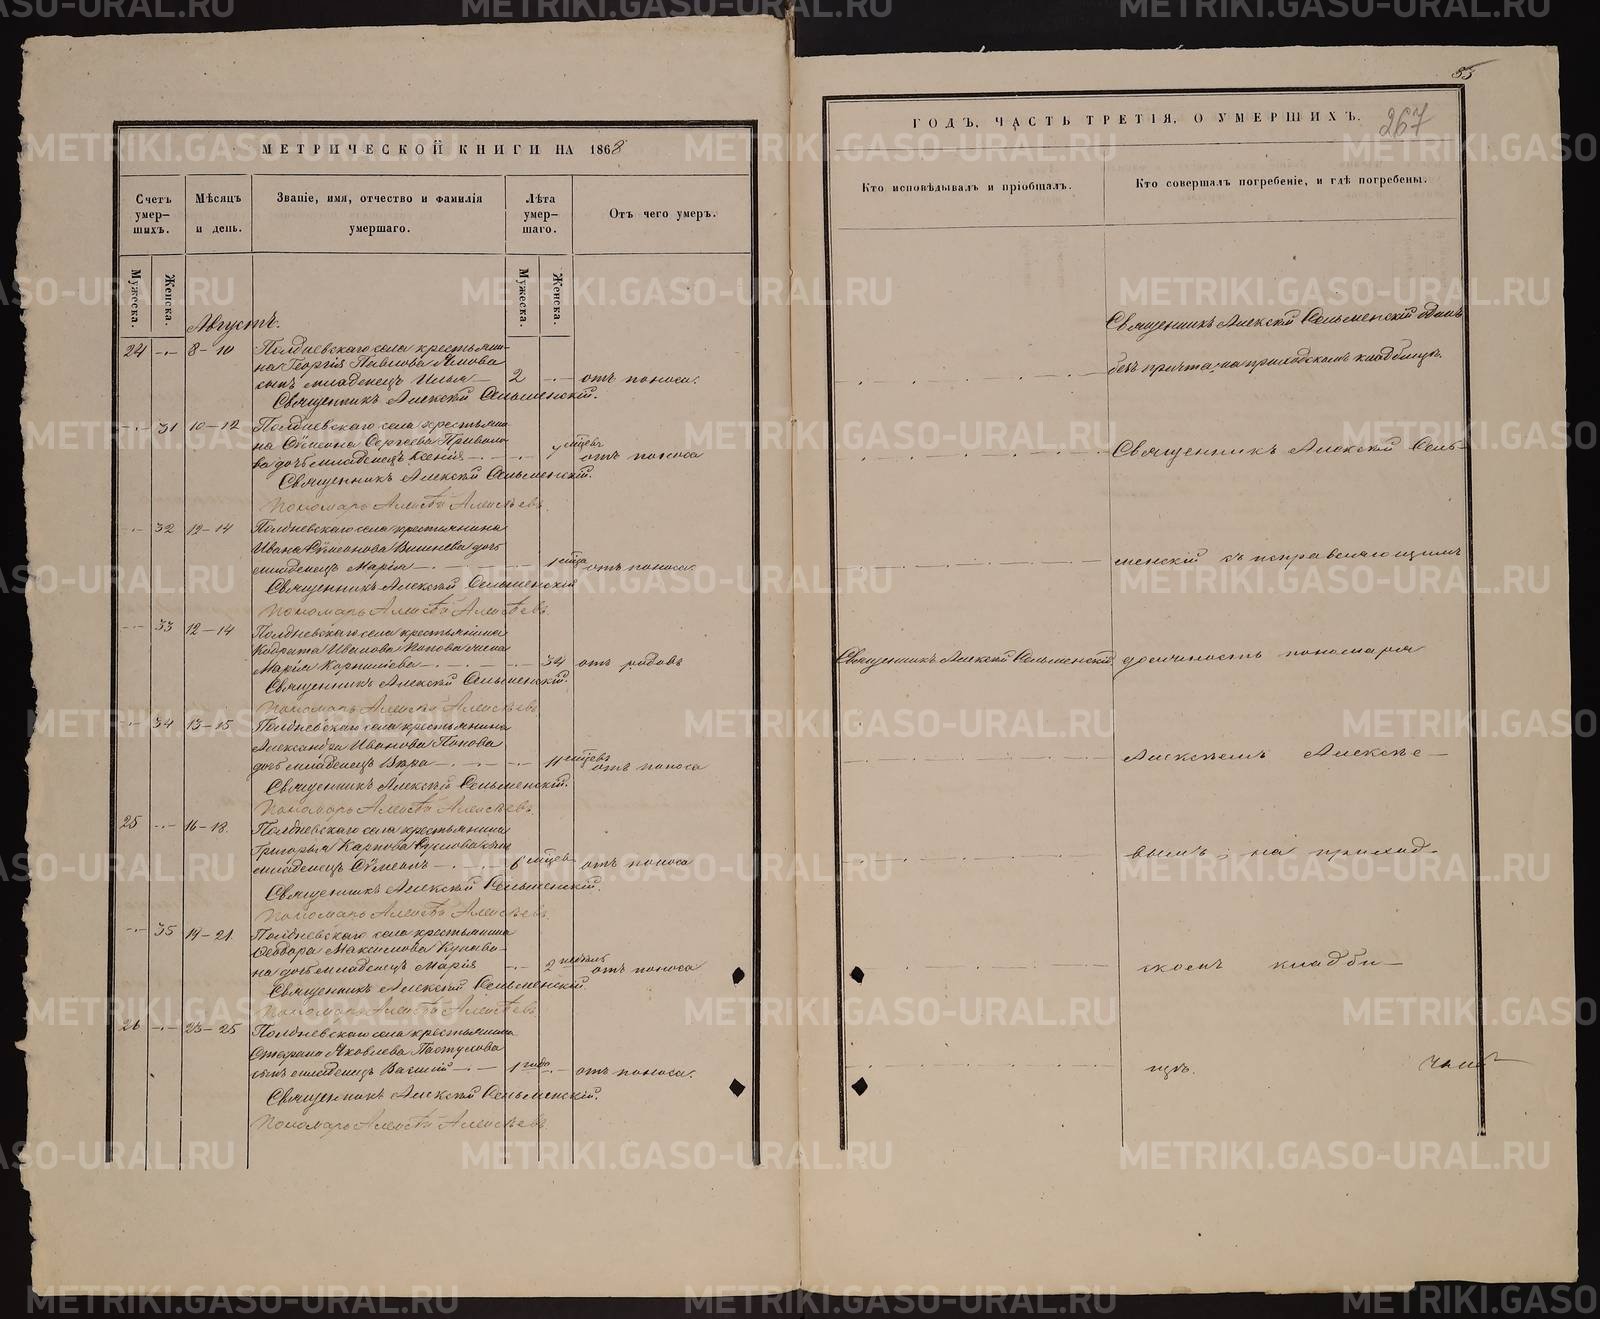 МЕТРИЧЕСКОЙ КНИГИ НА 1868
Счетъ умер-шихъ.
Мѣсяцъ и день.
Званіе, имя, отчество и фамилія умершаго.
Лѣта умер-шаго.
Отъ чего умеръ.
Мужеска.
Женска.
Мужеска.
Женска.
Августъ.
24 8-10 Полдневскаго села крестьяни-
на Георгія Павлова
сынъ младенецъ Илья 2 отъ поноса.
Священникъ Алексѣй Сельменскій.
31 10-12 Полдневскаго села крестьяни-
на Сѵмеона Сергеева Привало-
ва дочь младенецъ Ксенія 7 мцевъ отъ поноса
Священникъ Алексѣй Сельменскій.
Пономарь Алексѣй Алексѣевъ.
32 12-14 Полдневскаго села крестьянина
Ивана Сѵмеонова дочь
младенецъ Марія 1 мца отъ поноса.
Священникъ Алексѣй Сельменскій
Пономарь Алексѣй Алексѣевъ.
33 12-14 Полдневскаго села крестьянина
Кодрата Иванова Попова жена
Марія Корнилова 34 отъ родовъ
Священникъ Алексѣй Сельменскій.
Пономарь Алексѣй Алексѣевъ.
34 13-15 Полдневскаго села крестьянина
Александра Иванова Попова
дочь младенецъ Вѣра 11 мцевъ отъ поноса
Священникъ Алексѣй Сельменскій.
Пономарь Алексѣй Алексѣевъ.
25 16-18. Полдневскаго села крестьянина
Григорья Карпова Суслова сынъ
младенецъ Сѵмеонъ 6 мцевъ отъ поноса
Священникъ Алексѣй Сельменскій.
Пономарь Алексѣй Алексѣевъ.
35 19-21. Полдневскаго села крестьянина
Ѳеодора Максимова
на дочь младенецъ Марія 2 недѣль отъ поноса
Священникъ Алексѣй Сельменскій.
Пономарь Алексѣй Алексѣевъ.
26 23-25 Полдневскаго села крестьянина
Стефана Яковлева Пастухова
сынъ младенецъ Василій 1 года отъ поноса.
Священникъ Алексѣй Сельменскій.
Пономарь Алексѣй Алексѣевъ.
85
267
ГОДЪ, ЧАСТЬ ТРЕТІЯ, О УМЕРШИХЪ.
Кто исповѣдывалъ и пріобщалъ.
Кто совершалъ погребеніе, и гдѣ погребены.
Священникъ Алексѣй Сельменскій одинъ
безъ причта, на приходскомъ кладбищѣ.
Священникъ Алексѣй Сель-
менскій съ исправляющимъ
Священникъ Алексѣй Сельменскій должность пономаря
Алексѣемъ Алексѣе-
вымъ, на приход-
скомъ кладби-
щѣ.
METRIKI.GASO-URAL.RU